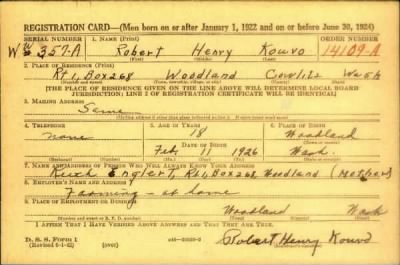 REGISTRATION CARD—(Men born on or after January 1, 1922 and on or before June 30, 1924)
SERIAL NUMBER 1. NAME (Print) ORDER NUMBER
W 357-A Robert Henry Kouvo 14109-A
(First) (Middle) (Last)
2. PLACE OF RESIDENCE (Print)
Rt 1, Box 268 Woodland Cowlitz Wash
[THE PLACE OF RESIDENCE GIVEN ON THE LINE ABOVE WILL DETERMINE LOCAL BOARD
JURISDICTION; LINE 2 OF REGISTRATION CERTIFICATE WILL BE IDENTICAL]
3. MAILING ADDRESS
Same
4. TELEPHONE 5. AGE IN YEARS 6. PLACE OF BIRTH
none 18 Woodland
DATE OF BIRTH
Feb 11 1926 Wash.
(Mo.) (Day) (Yr.)
7. NAME AND ADDRESS OF PERSON WHO WILL ALWAYS KNOW YOUR ADDRESS
Ruth Englert, Rt 1, Box 268, Woodland (Mother)
8. EMPLOYER'S NAME AND ADDRESS
Farming – at home
9. PLACE OF EMPLOYMENT OR BUSINESS
Woodland Wash
I AFFIRM THAT I HAVE VERIFIED ABOVE ANSWERS AND THAT THEY ARE TRUE.
D. S. S. Form 1
(over)
Robert Henry Kouvo